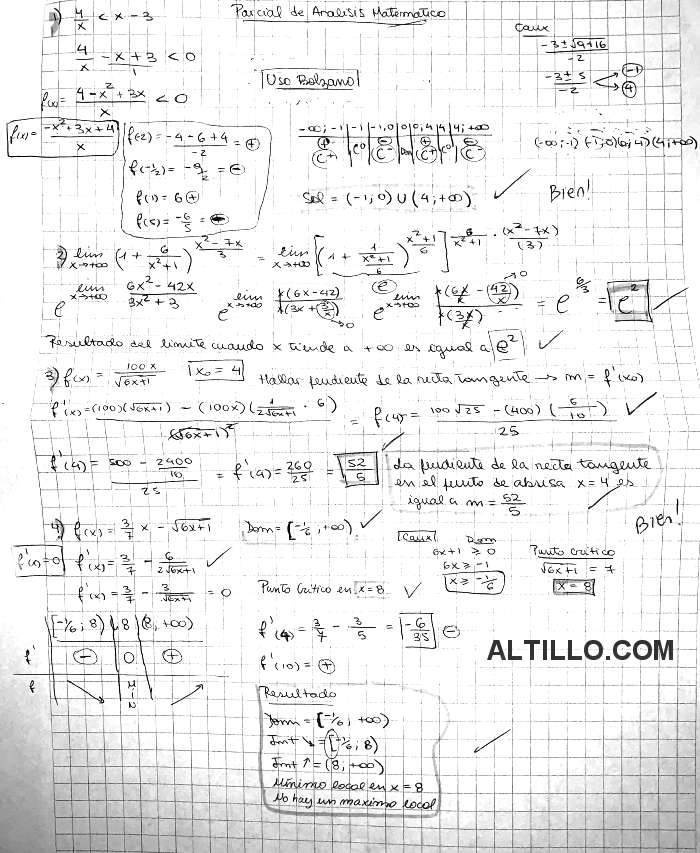 Parcial de Analisis Matematico
1) 4/x < x - 3
4/x - x + 3/1 < 0
f(x) = (4 - x² + 3x)/x < 0
f(x) = (-x² + 3x + 4)/x
Caux
(-3 ± √(9+16))/-2
(-3 ± 5)/-2
-1
4
Uso Bolzano
f(-2) = (-4 - 6 + 4)/-2 = ⊕
f(-1/2) = -9/2 = ⊖
f(1) = 6 ⊕
f(5) = -6/5 = ⊖
-∞; -1 | -1 | -1, 0 | 0 | 0, 4 | 4 | 4; +∞
C⁺ | C⁰ | C⁻ | C⁺ | C⁰ | C⁻
(-∞; -1) (-1, 0) (0, 4) (4, +∞)
Sol = (-1, 0) ∪ (4, +∞) ✓
Bien!
2) lim x→+∞ (1 + 6/(x²+1))^((x²-7x)/3) = lim x→+∞ [(1 + 1/((x²+1)/6))^((x²+1)/6)]^(6/(x²+1) · (x²-7x)/(3))
e
e^(lim x→+∞ (6x² - 42x)/(3x² + 3)) e^(lim x→+∞ x(6x - 42)/x(3x + (3/x))) →0 e^(lim x→+∞ x(6x/x - (42/x))/x(3x/x)) →0 = e^(6/3) = e² ✓
Resultado del limite cuando x tiende a +∞ es igual a e² ✓
3) f(x) = 100x/√(6x+1) x₀ = 4 Hallar pendiente de la recta tangente → m = f'(x₀)
f'(x) = ((100)(√(6x+1)) - (100x)(1/(2√(6x+1)) · 6))/(√(6x+1))² = f(4) = (100√25 - (400)(6/10))/25 ✓
f'(4) = (500 - 2400/10)/25 = f'(4) = 260/25 = 52/5 ✓
La pendiente de la recta tangente
en el punto de abscisa x = 4 es
igual a m = 52/5
Bien!
4) f(x) = 3/7 x - √(6x+1) Dom = [-1/6, +∞) ✓
f'(x) = 0
f'(x) = 3/7 - 6/(2√(6x+1)) ✓
f'(x) = 3/7 - 3/√(6x+1) = 0
Caux
Dom
6x+1 ≥ 0
6x ≥ -1
x ≥ -1/6
Punto Critico
√(6x+1) = 7
x = 8
Punto Critico en x = 8 ✓
[-1/6; 8) | 8 | (8, +∞)
f' | ⊖ | 0 | ⊕
f | ↘ | MIN | ↗
f'(4) = 3/7 - 3/5 = -6/35 ⊖
f'(10) = ⊕
ALTILLO.COM
Resultado
Dom = [-1/6; +∞)
Int ↘ = [-1/6; 8)
Int ↑ = (8, +∞)
Mínimo local en x = 8
No hay un maximo local
✓